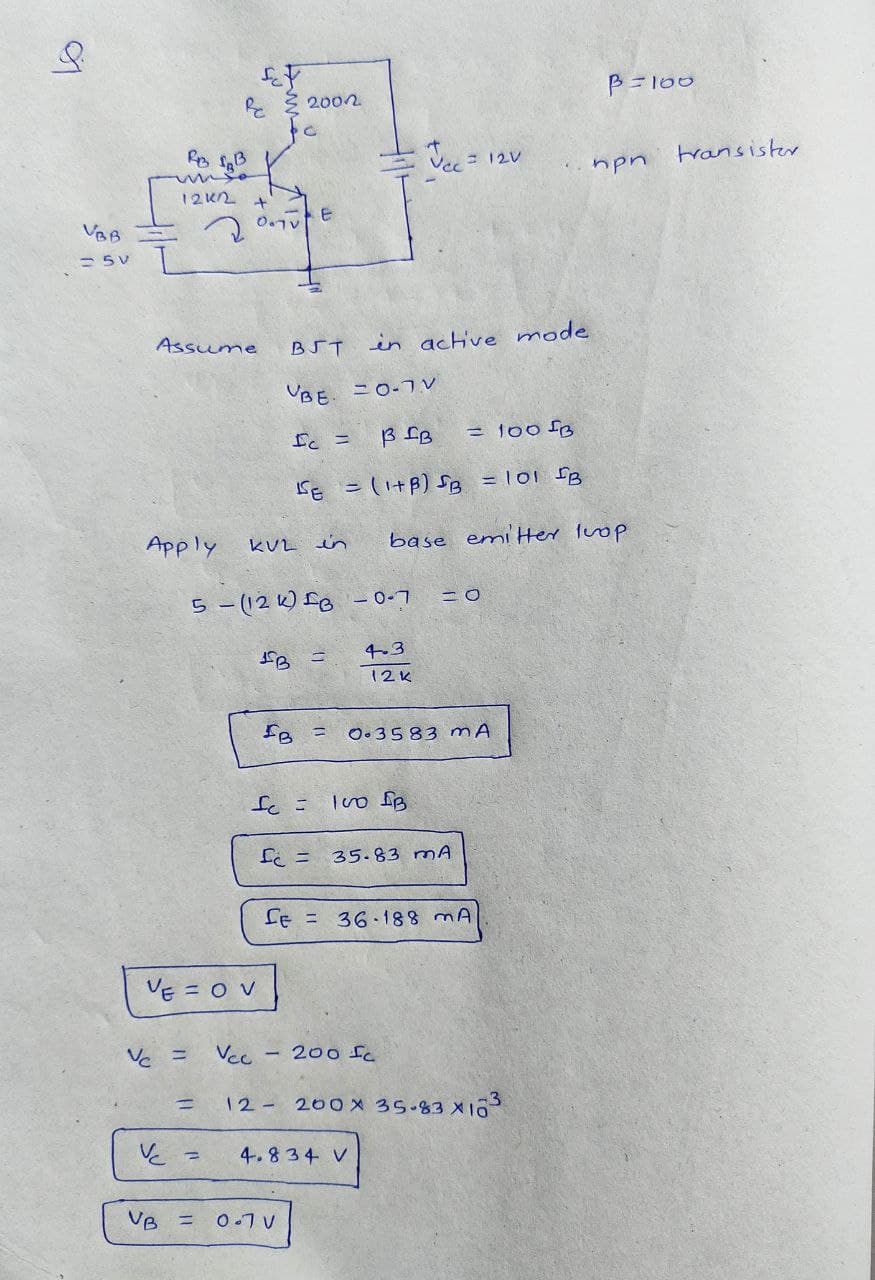 Q.
I_C
R_C 200Ω
C
β = 100
R_B I_B B
12KΩ
+ 0.7V - E
V_BB = 5V
+ V_CC = 12V -
npn transistor
Assume BJT in active mode
V_BE = 0.7V
I_C = β I_B = 100 I_B
I_E = (1+β) I_B = 101 I_B
Apply KVL in base emitter loop
5 - (12K) I_B - 0.7 = 0
I_B = 4.3 / 12K
I_B = 0.3583 mA
I_C = 100 I_B
I_C = 35.83 mA
I_E = 36.188 mA
V_E = 0 V
V_C = V_CC - 200 I_C
= 12 - 200 × 35.83 × 10^-3
V_C = 4.834 V
V_B = 0.7 V